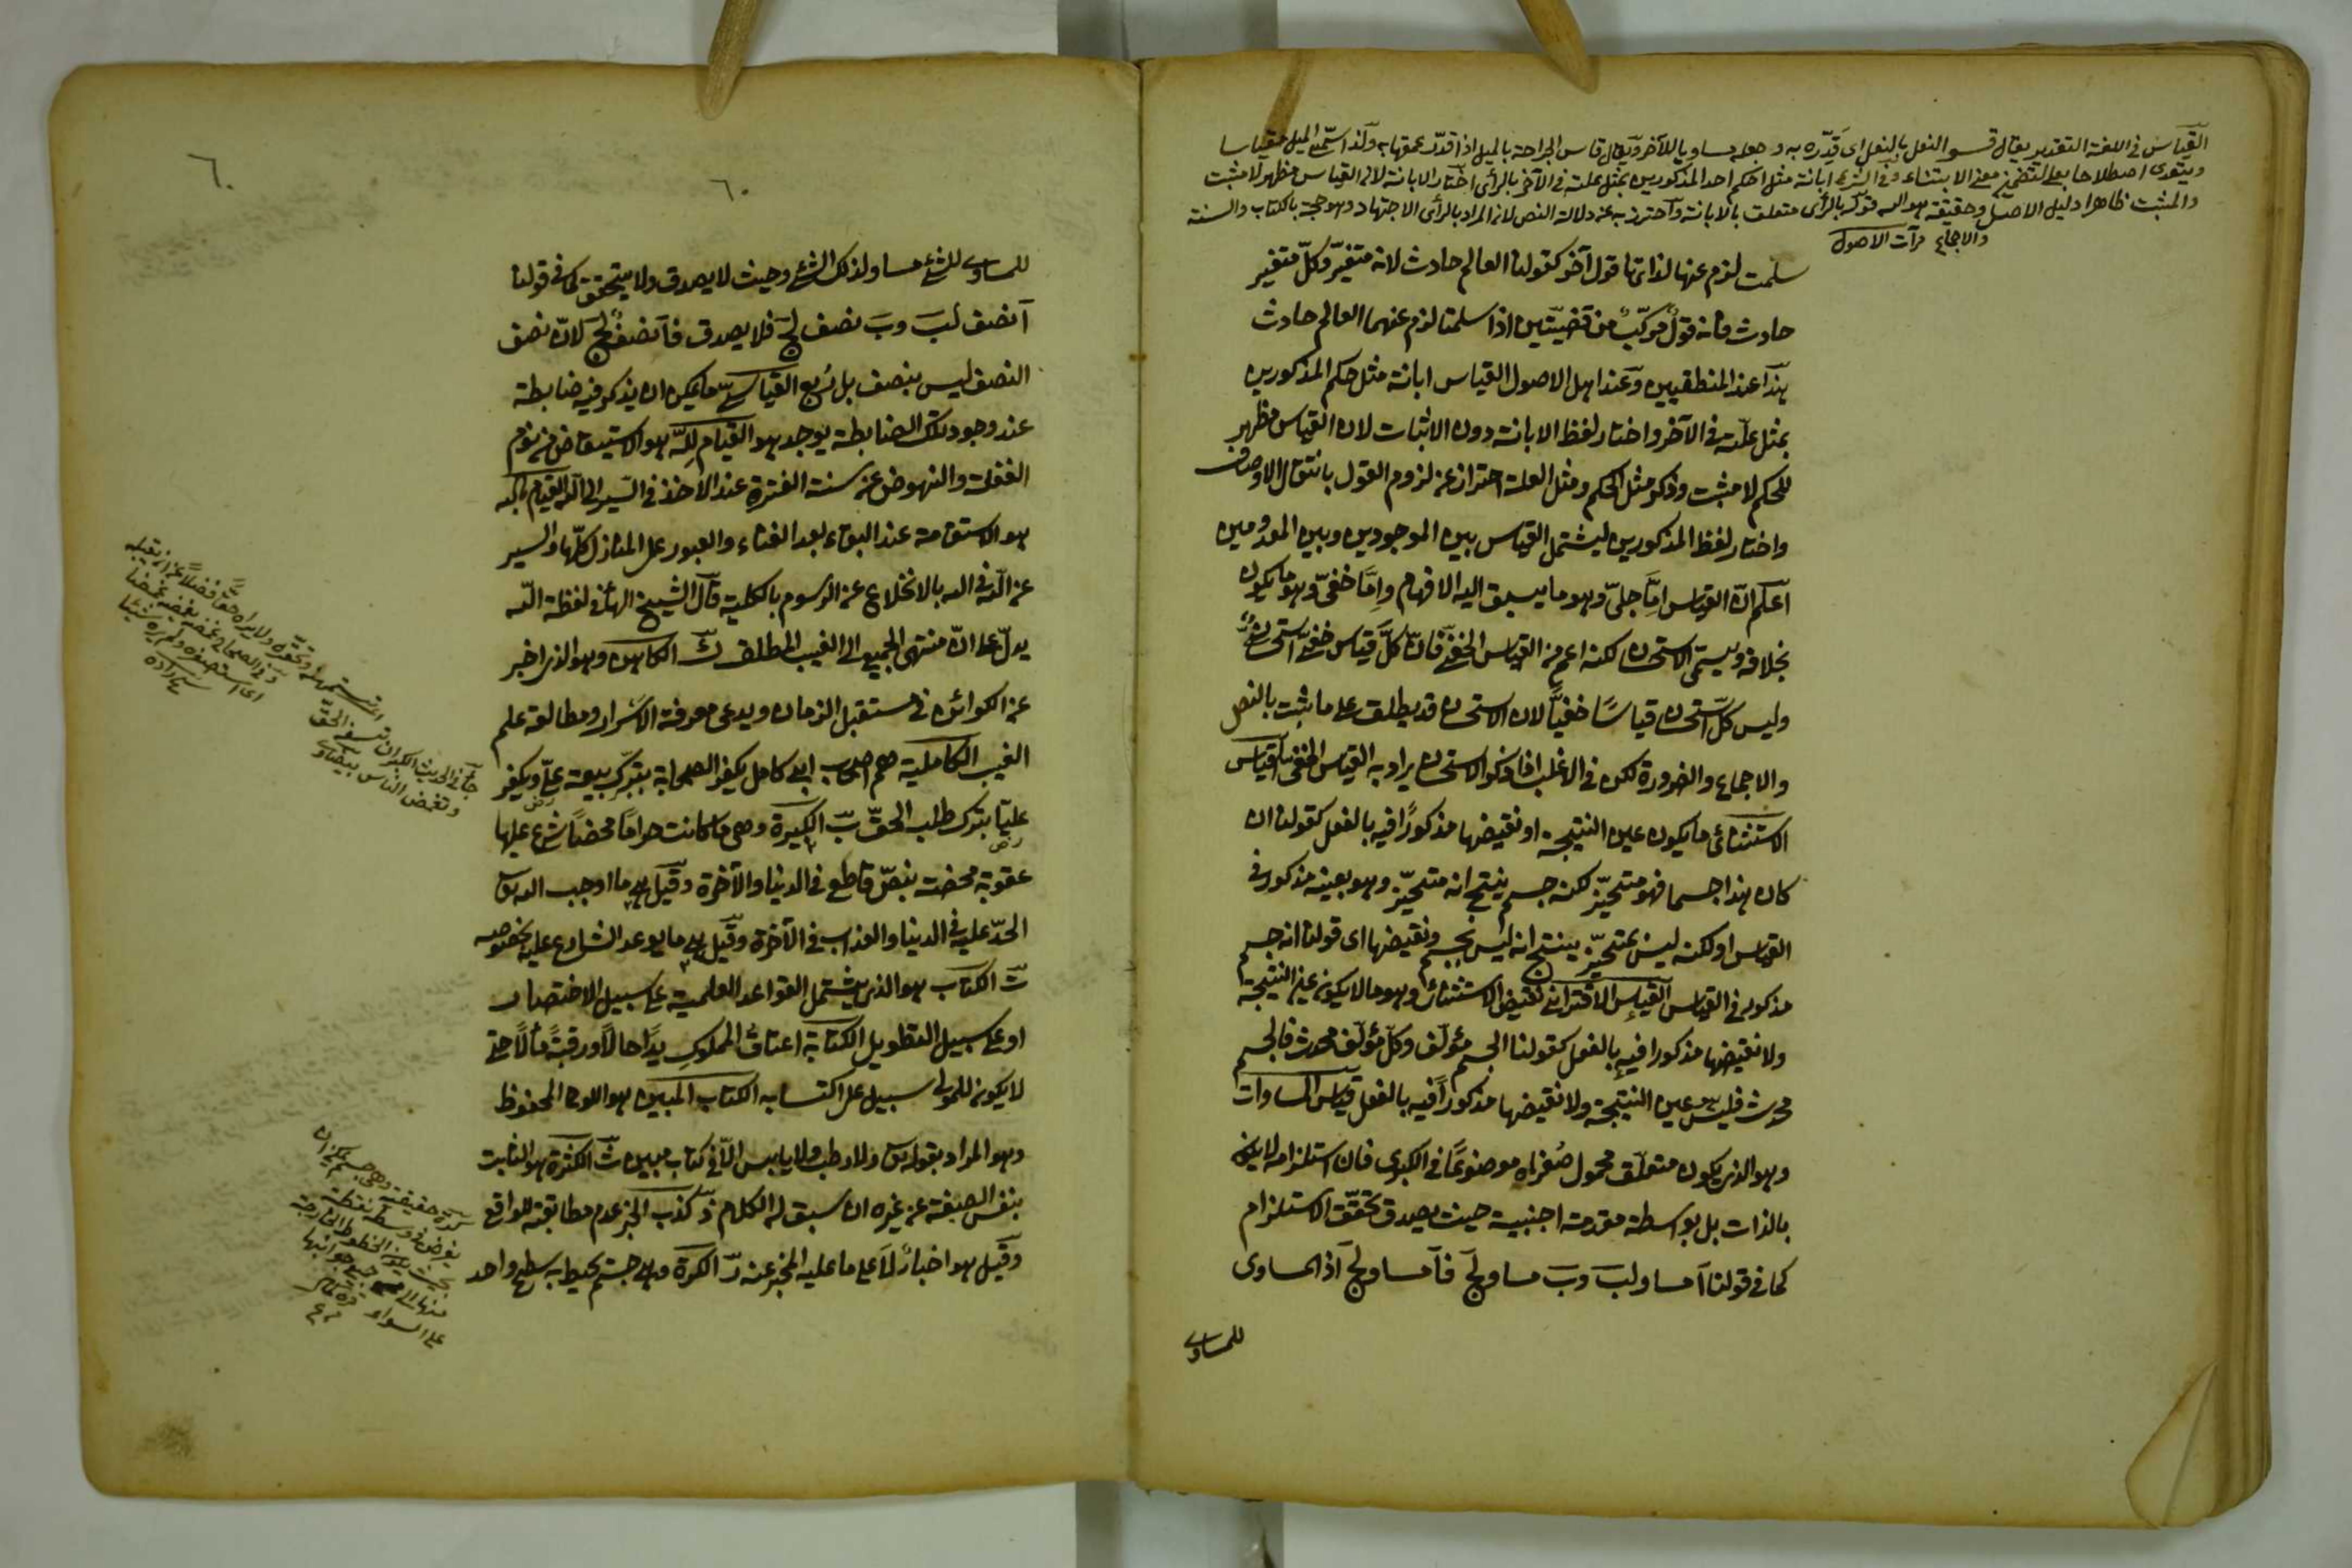 القياس في اللغة التقدير يقال قس النعل بالنعل اى قدّره به وجعله مساويا للآخر ويقال قاس الجراحة بالميل اذا قدّر عمقها به ولذا سمّى الميل مقياسا
ويتعدى اصطلاحا بعلى لتضمّن معنى الابتناء وفى الشرع ابانة مثل حكم احد المذكورين بمثل علته فى الآخر بالرأى اختار الابانة لان القياس مظهر لا مثبت
والمثبت ظاهرا دليل الاصل وحقيقة هو الله قوله بالرأى متعلق بالابانة واحترز به عن دلالة النص لان المراد بالرأى الاجتهاد وهو حجة بالكتاب والسنة
والاجماع مرآت الاصول
سلمت لزم عنها لذاتها قول آخر كقولنا العالم حادث لانه متغيّر وكلّ متغير
حادث فانه قولٌ مركّبٌ من قضيّتين اذا سلمتا لزم عنهما العالم حادث
هذا عند المنطقيين وعند اهل الاصول القياس ابانة مثل حكم المذكورين
بمثل علّته فى الآخر واختار لفظ الابانة دون الاثبات لان القياس مظهر
للحكم لا مثبت وذكر مثل الحكم ومثل العلة احتراز عن لزوم القول بانتقال الاوصاف
واختار لفظ المذكورين ليشتمل القياس بين الموجودين وبين المعدومين
اعلم انّ القياس امّا جلىّ وهو ما يسبق اليه الافهام وامّا خفىّ وهو ما يكون
بخلافه ويسمّى الاستحسان لكنه اعم من القياس الخفى فانّ كلّ قياس خفى استحسانٌ
وليس كلّ استحسان قياسًا خفيًّا لان الاستحسان قد يطلق على ما ثبت بالنص
والاجماع والضرورة لكن فى الاغلب اذا ذكر الاستحسان يراد به القياس الخفى القياس
الاستثنائى ما يكون عين النتيجة او نقيضها مذكورًا فيه بالفعل كقولنا ان
كان هذا جسما فهو متحيّز لكنه جسم ينتج انه متحيّز وهو بعينه مذكور فى
القياس او لكنه ليس بمتحيّز ينتج انه ليس بجسم ونقيضها اى قولنا انه جسم
مذكور فى القياس القياس الاقترانى نقيض الاستثنائى وهو ما لا يكون عين النتيجة
ولا نقيضها مذكورا فيه بالفعل كقولنا الجسم مؤلّف وكلّ مؤلّف محدث فالجسم
محدث فليس عين النتيجة ولا نقيضها مذكورًا فيه بالفعل قياس المساوات
وهو الذى يكون متعلّق محمول صُغراه موضوعًا فى الكبرى فان استلزامه لا يكون
بالذات بل بواسطة مقدمة اجنبية حيث يصدق تحقّق الاستلزام
كما فى قولنا آ مساو لبَ وبَ مساو لجَ فآ مساو لجَ اذ المساوى
للمساوى
٦٠
٦٠
للمساوى للشئ مساو لذلك الشئ وحيث لا يصدق ولا يتحقق كما فى قولنا
آ نصف لبَ وبَ نصف لجَ فلا يصدق فآ نصفٌ لجَ لانّ نصف
النصف ليس بنصف بل رُبع القياسىّ ما يمكن ان يذكر فيه ضابطة
عند وجود تلك الضابطة يوجد هو القيام للّه هو الاستيقاظ من نوم
الغفلت والنهوض عن سنة الفترة عند الاخذ فى السّير الى اللّه القيام بالله
هو الاستقامة عند البقاء بعد الفناء والعبور على المنازل كلّها والسير
عن اللّه فى الله بالانخلاع عن الرسوم بالكلية قال الشيخ الهاء فى لفظة اللّه
يدلّ على انّ منتهى الجميع الى الغيب المطلق ك الكاهن وهو الذى اخبر
عن الكوائن فى مستقبل الزمان ويدعى معرفة الاسرار ومطالعة علم
الغيب الكاملية هم اصحاب ابى كامل يكفر الصحابة بتركّ بيعة علىّ ويكفر
عليّا بترك طلب الحقّ بّ الكبيرة وهى ما كانت حراما محضاً شرع عليها
عقوبة محضة بنصّ قاطع فى الدنيا والآخرة وقيل هى ما اوجب الله
الحدّ عليه فى الدنيا والعذاب فى الآخرة وقيل هى ما يوعد الشارع عليه بخصوصه
تّ الكتاب هو الذى يشتمل القواعد العلمية على سبيل الاختصار
او على سبيل التطويل الكتابة اعتاق المملوك يدًا حالًا ورقبة مآلًا حتى
لا يكون للمولى سبيل على اكتسابه الكتاب المبين هو اللوح المحفوظ
وهو المراد بقوله تعالى ولا رطب ولا يابس الّا فى كتاب مبين ثّ الكثرة هو الثابت
بنفس الصيغة عن غيره ان سبق له الكلام ذّ كذب الخبر عدم مطابقته للواقع
وقيل هو اخبارٌ لا على ما عليه المخبر عنه رّ الكرة وهى جسم يحيط به سطح واحد
جاء فى الحديث الكبر ان تسفه الحق
وتغمض الناس بيضاوى
كرة حقيقة وهى جسم يمكن ان
يفرض فى وسطه نقطة
بحيث يكون الخطوط الخارجة
منها الى جميع جوانبها
على السواء